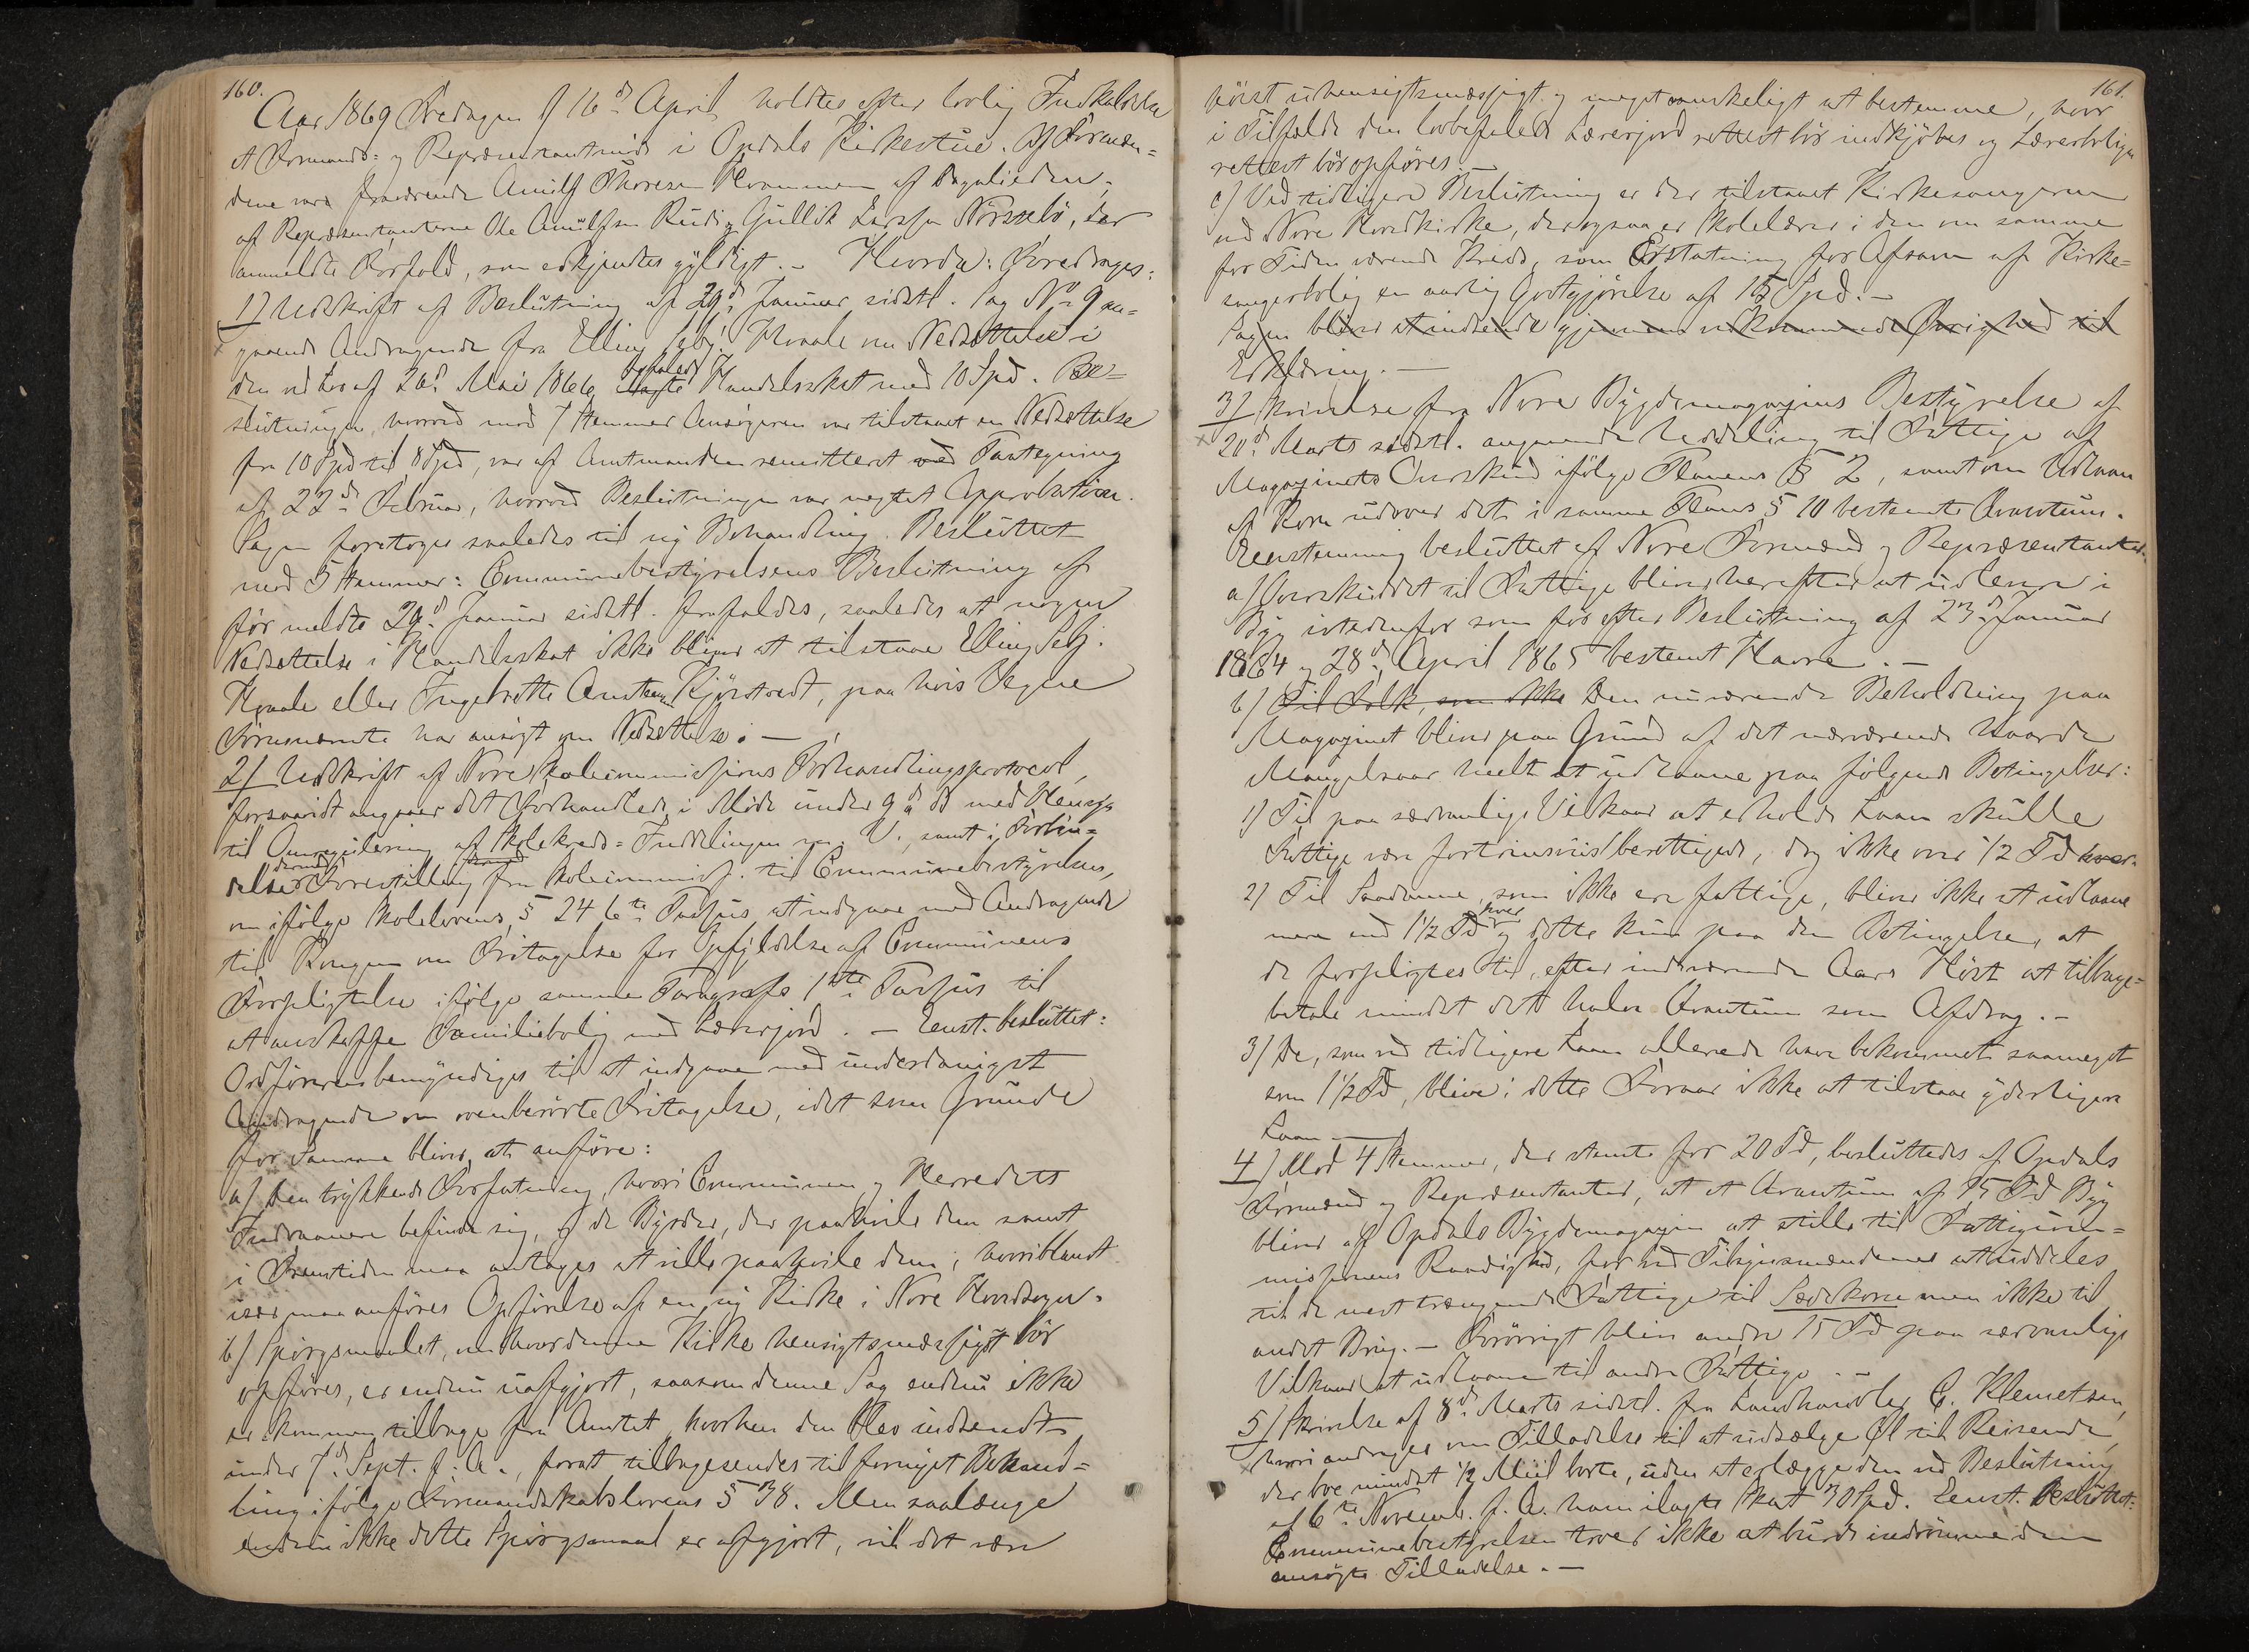 160.
Aar 1869 Fredagen d 16d April holdtes efter lovlig Indkaldelse
et Formands- og Repræsentantmøde i Opdals Kirkestue. Af Formæn-
dene vare fraværende Arnulf Thoresen af Dagalieden,
af Repræsentanterne Ole Arnulfsen Ruud og Gullik Larssen, der
anmeldte Forfald, som erkjendtes gyldigt. – Hvorda: Foredrages:
1) Udskrift af Beslutning af 29d Januar sidstl. Sag No 9 an-
gaaende Andragende fra Elling Sebj. Hvaale om Nedsættelse i
den ved Lov af 26d Mai 1866 befalede Handelsskat med 10 Spd. Be-
slutningen, hvorved mod 7 Stemmer Ansøgeren var tilstaaet en Nedsættelse
fra 10 Spd til 8 Spd, var af Amtmanden remitteret ved Paategning
af 22d Februar, hvorved Beslutningen var negtet Approbation.
Sagen foretoges saaledes til ny Behandling. Besluttet
med 5 Stemmer: Communebestyrelsens Beslutning af
før meldte 29d Januar sidstl. frafaldes, saaledes at nogen
Nedsættelse i Handelsskat ikke bliver at tilstaae Elling Sebj.
Hvaale eller Ingebrette Kjørstad, paa hvis Vegne
Førnævnte har ansøgt om Nedsættelse. –
2) Udskrift af Nore Skolecommissions Forhandlingsprotocol,
forsaavidt angaaer det Forhandlede i Møde under 9d ds med Hensyn
til Omregulering af Skolekreds-Inddelingen No V., samt i Forbin-
delse dermed Forestilling fra Skolecommiss. til Communebestyrelsen,
om ifølge Skolelovens § 24 6te Passus at indgaae med Andragende
til Kongen om Fritagelse for Opfyldelse af Communens
Forpligtelse ifølge samme Paragrafs 1ste Passus til
at anskaffe Familiebolig med Lærerjord. – Eenst. besluttet:
Ordføreren bemyndiges til at indgaae med underdanigst
Andragende om ovenberørte Fritagelse, idet som Grunde
for Samme bliver at anføre:
a) Den trykkende Forfatning, hvori Communen og Herredets
Indvaanere befinde sig, og de Byrder, der paahvile dem samt
i Fremtiden maa antages at ville paahvile dem, hvoriblandt
især maa anføres Opførelse af en ny Kirke i Nore Hovedsogn.
b) Spørgsmaalet, om hvor denne Kirke hensigtsmæssigst bør
opføres, er endnu uafgjort, saasom denne Sag endnu ikke
er kommen tilbage fra Amtet, hvorhen den blev indsendt
under 7d Sept. f. A., foratt tilbagesendes til fornyet Behand-
ling ifølge Formandskabslovens § 38. Men saalænge
endnu ikke dette Spørgsmaal er afgjort, vil det være
161.
høist uhensigtsmæssigt og meget vanskeligt at bestemme, hvor
i Tilfælde den lovbefalede Lærerjord rettest bør indkjøbes og Lærerboligen
rettest bør opføres. –
c) Ved tidligere Beslutning er der tilstaaet Kirkesangeren
ved Nore Hovedkirke, der ogsaa er Skolelærer i den om samme
for Tiden værende Kreds, som Erstatning for Afsavn af Kirke-
sangerbolig en aarlig Godtgjørelse af 15 Spd. –
Sagen bliver at indsende gjennem vedkommende Øvrighed til
Erklæring. –
3) Skrivelse fra Nore Bygdemagazins Bestyrelse af
20d Marts sidstl. angaaende Uddeling til Fattige af
Magazinets Overskud ifølge Planens § 2, samt om Udlaan
af Korn udover det i samme Plans § 10 bestemte Qvantum.
Eenstemmig besluttet af Nore Formænd og Repræsentanter.
a) Overskuddet til Fattige bliver herefter at udlevere i
Byg istedenfor som før efter Beslutning af 23d Januar
1864 og 28d April 1865 bestemt Havre. –
b) Til Folk, som ikke Den nuværende Beholdning paa
Magazinet bliver paa Grund af det nærværende haarde
Mangelsaar heelt at udlaane paa følgende Betingelser:
1) Til paa sædvanlige Vilkaar at erholde Laan skulle
Fattige være fortrinsviis berettigede, dog ikke over 1/2 Td hver.
2) Til Saadanne, som ikke ere fattige, bliver ikke at udlaane
mere end 1 1/2 Td hver og dette kun paa den Betingelse, at
de forpligtes til, efter indeværende Aars Høst at tilbage-
betale mindst det halve Qvantum som Afdrag. –
3) De, som ved tidligere Laan allerede have bekommet saameget
som 1 1/2 Td, blive i dette Foraar ikke at tilstaae yderligere
Laan. –
4) Mod 4 Stemmer, der stemte for 20 Td, besluttedes af Opdals
Formænd og Repræsentanter, at et Qvantum af 15 Td Byg
bliver af Opdals Bygdemagazin at stille til Fattigcom-
missionens Raadighed, for ved Tilsynsmændene at uddeles
til de mest trængende Fattige til Sædekorn men ikke til
andet Brug. – Forøvrigt bliver andre 15 Td paa sædvanlige
Vilkaar at udlaane til andre Fattige. –
5) Skrivelse af 8d Marts sidstl. fra Landhandler C. Klemetsen,
hvori andrages om Tilladelse til at udsælge Øl til Reisende,
der boe mindst 1/2 Miil borte, uden at erlægge den ved Beslutning
af 6te Novemb. f. A. ham ilagte Skat 30 Spd. Eenst. Besluttet:
Communebestyrelsen troer ikke at burde indrømme den
ansøgte Tilladelse. –